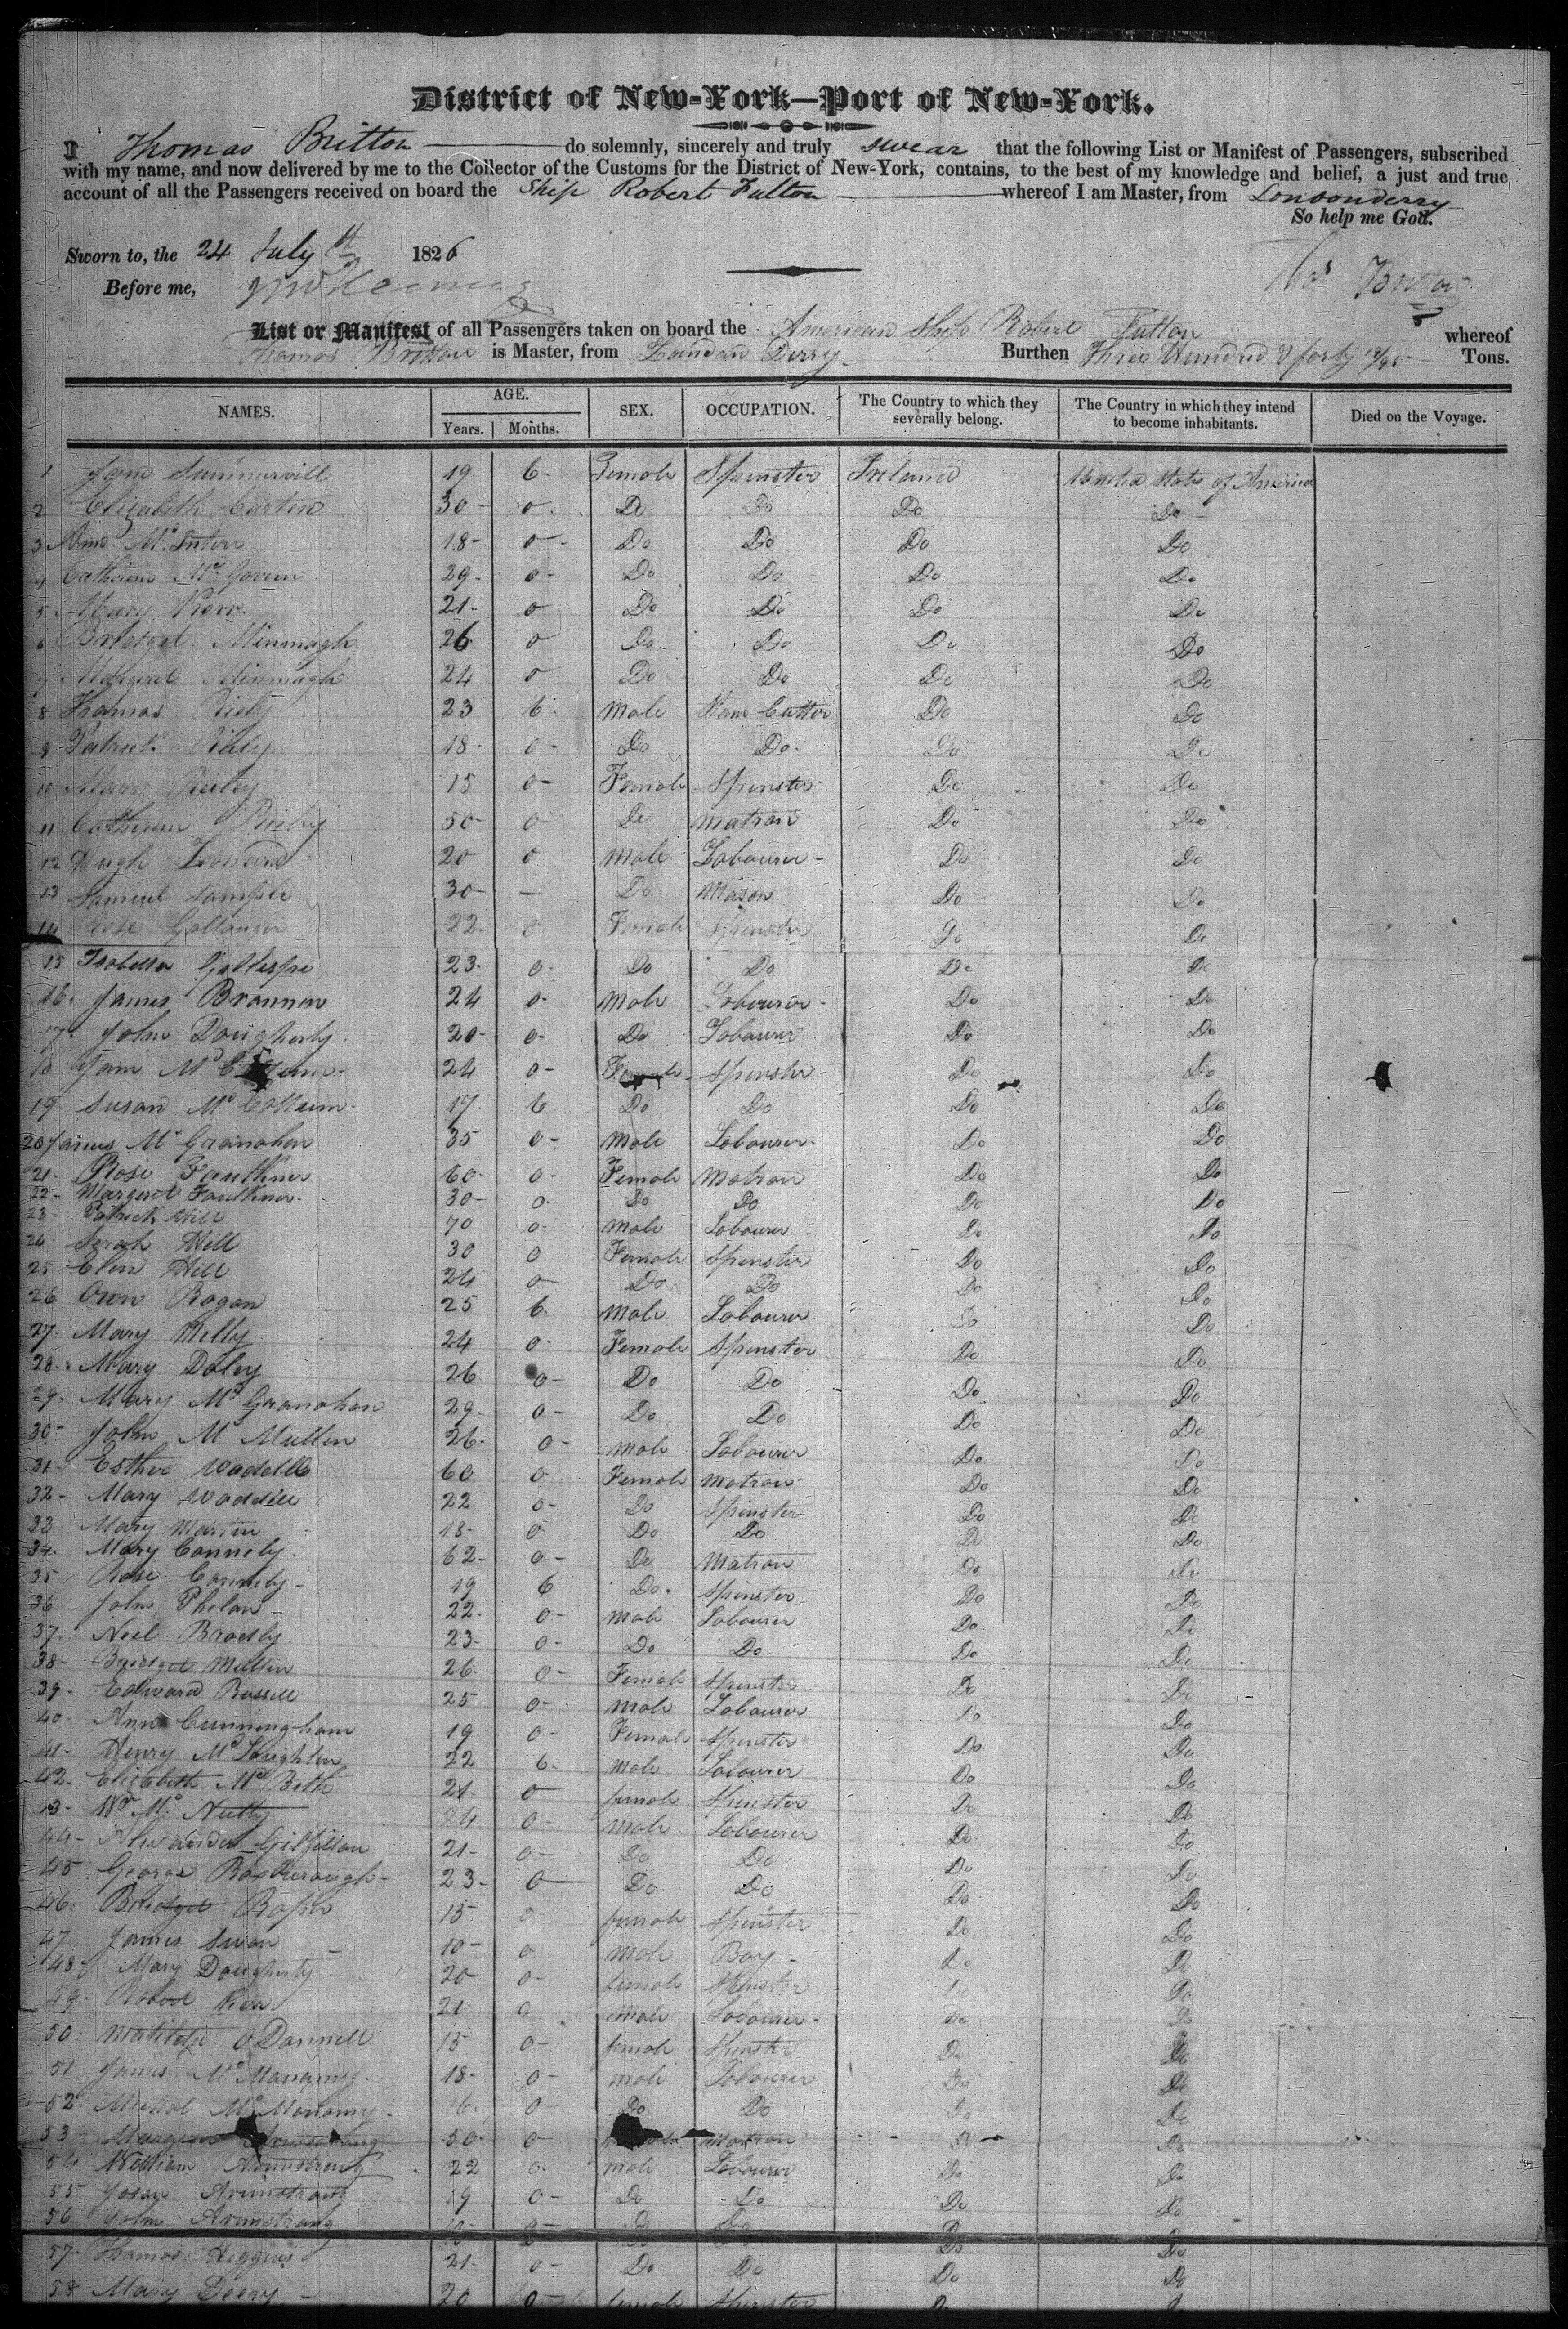 District of New-York—Port of New-York.
I Thomas Britton do solemnly, sincerely and truly swear that the following List or Manifest of Passengers, subscribed
with my name, and now delivered by me to the Collector of the Customs for the District of New-York, contains, to the best of my knowledge and belief, a just and true
account of all the Passengers received on board the Ship Robert Fulton whereof I am Master, from Londonderry
So help me God.
Sworn to, the 24 July th 1826
Before me,
Thos Britton
List or Manifest of all Passengers taken on board the American Ship Robert Fulton whereof
Thomas Britton is Master, from Londonderry Burthen Three Hundred & forty Tons.
NAMES. AGE. SEX. OCCUPATION. The Country to which they severally belong. The Country in which they intend to become inhabitants. Died on the Voyage.
Years. Months.
1 Jane Summervill 19 6 Female Spinster Ireland United State of America
2 Elizabeth Carten 30 0 Do Do Do Do
3 18 0 Do Do Do Do
4 Catherine McGovern 29 0 Do Do Do Do
5 Mary Kerr 21 0 Do Do Do Do
6 Bridget Minmagh 26 0 Do Do Do Do
7 Margaret Minmagh 24 0 Do Do Do Do
8 Thomas Riely 23 6 Male Cutter Do Do
9 Patrick Riely 18 0 Do Do Do Do
10 Mary Rieley 15 0 Female Spinster Do Do
11 Catherine Rieley 50 0 Do Matron Do Do
12 Hugh Leonard 20 0 Male Labourer Do Do
13 Samuel Sample 30 — Do Mason Do Do
14 Rose Gallauger 22 0 Female Spinster Do Do
15 Isabella Gillespie 23 0 Do Do Do Do
16 James Brannan 24 0 Male Labourer Do Do
17 John Dougherty 20 0 Do Labourer Do Do
18 Jane 24 0 Female Spinster Do Do
19 Susan McCollum 17 6 Do Do Do Do
20 James McGranahan 35 0 Male Labourer Do Do
21 Rose Faulkner 60 0 Female Matron Do Do
22 Margaret Faulkner 30 0 Do Do Do Do
23 Patrick Hill 70 0 Male Labourer Do Do
24 Sarah Hill 30 0 Female Spinster Do Do
25 Elen Hill 24 0 Do Do Do Do
26 Own Rogan 25 6 Male Labourer Do Do
27 Mary Melly 24 0 Female Spinster Do Do
28 Mary Daley 26 0 Do Do Do Do
29 Mary McGranahan 29 0 Do Do Do Do
30 John McMullen 26 0 Male Labourer Do Do
31 Esther Waddell 60 0 Female Matron Do Do
32 Mary Waddell 22 0 Do Spinster Do Do
33 Mary Martin 18 0 Do Do Do Do
34 Mary Connely 62 0 Do Matron Do Do
35 Rose Connely 19 6 Do Spinster Do Do
36 John Phelan 22 0 Male Labourer Do Do
37 Neel Bradly 23 0 Do Do Do Do
38 Bridget Mullen 26 0 Female Spinster Do Do
39 Edward Russell 25 0 Male Labourer Do Do
40 Ann Cunningham 19 0 Female Spinster Do Do
41 Henry McLaughlin 22 6 Male Labourer Do Do
42 Elizabeth McBeth 21 0 female Spinster Do Do
43 Wm McNutty 24 0 Male Labourer Do Do
44 Alexander Gilfillan 21 0 Do Do Do Do
45 George Roxburough 23 0 Do Do Do Do
46 Bridget 15 0 female Spinster Do Do
47 James Swan 10 0 Male Boy Do Do
48 Mary Dougherty 20 0 female Spinster Do Do
49 Robert Kerr 21 0 Male Labourer Do Do
50 Matilda O'Donnell 15 0 female Spinster Do Do
51 James McManamy 18 0 male Labourer Do Do
52 McManamy 16 0 Do Do Do Do
53 Margaret Armstrong 50 0 Matron Do Do
54 William Armstrong 22 0 male Labourer Do Do
55 Armstrong 19 0 Do Do Do Do
56 John Armstrong 0 Do Do Do Do
57 Thomas Higgins 21 0 Do Do Do Do
58 Mary Deery 20 0 female Spinster